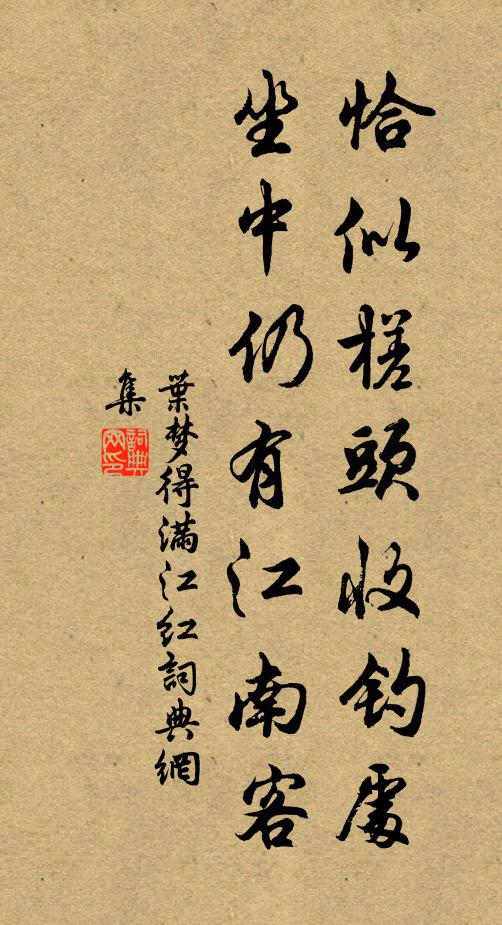 恰似槎頭收釣處
坐中仍有江南客
葉梦得滿江红詞典網
集
詞典网印